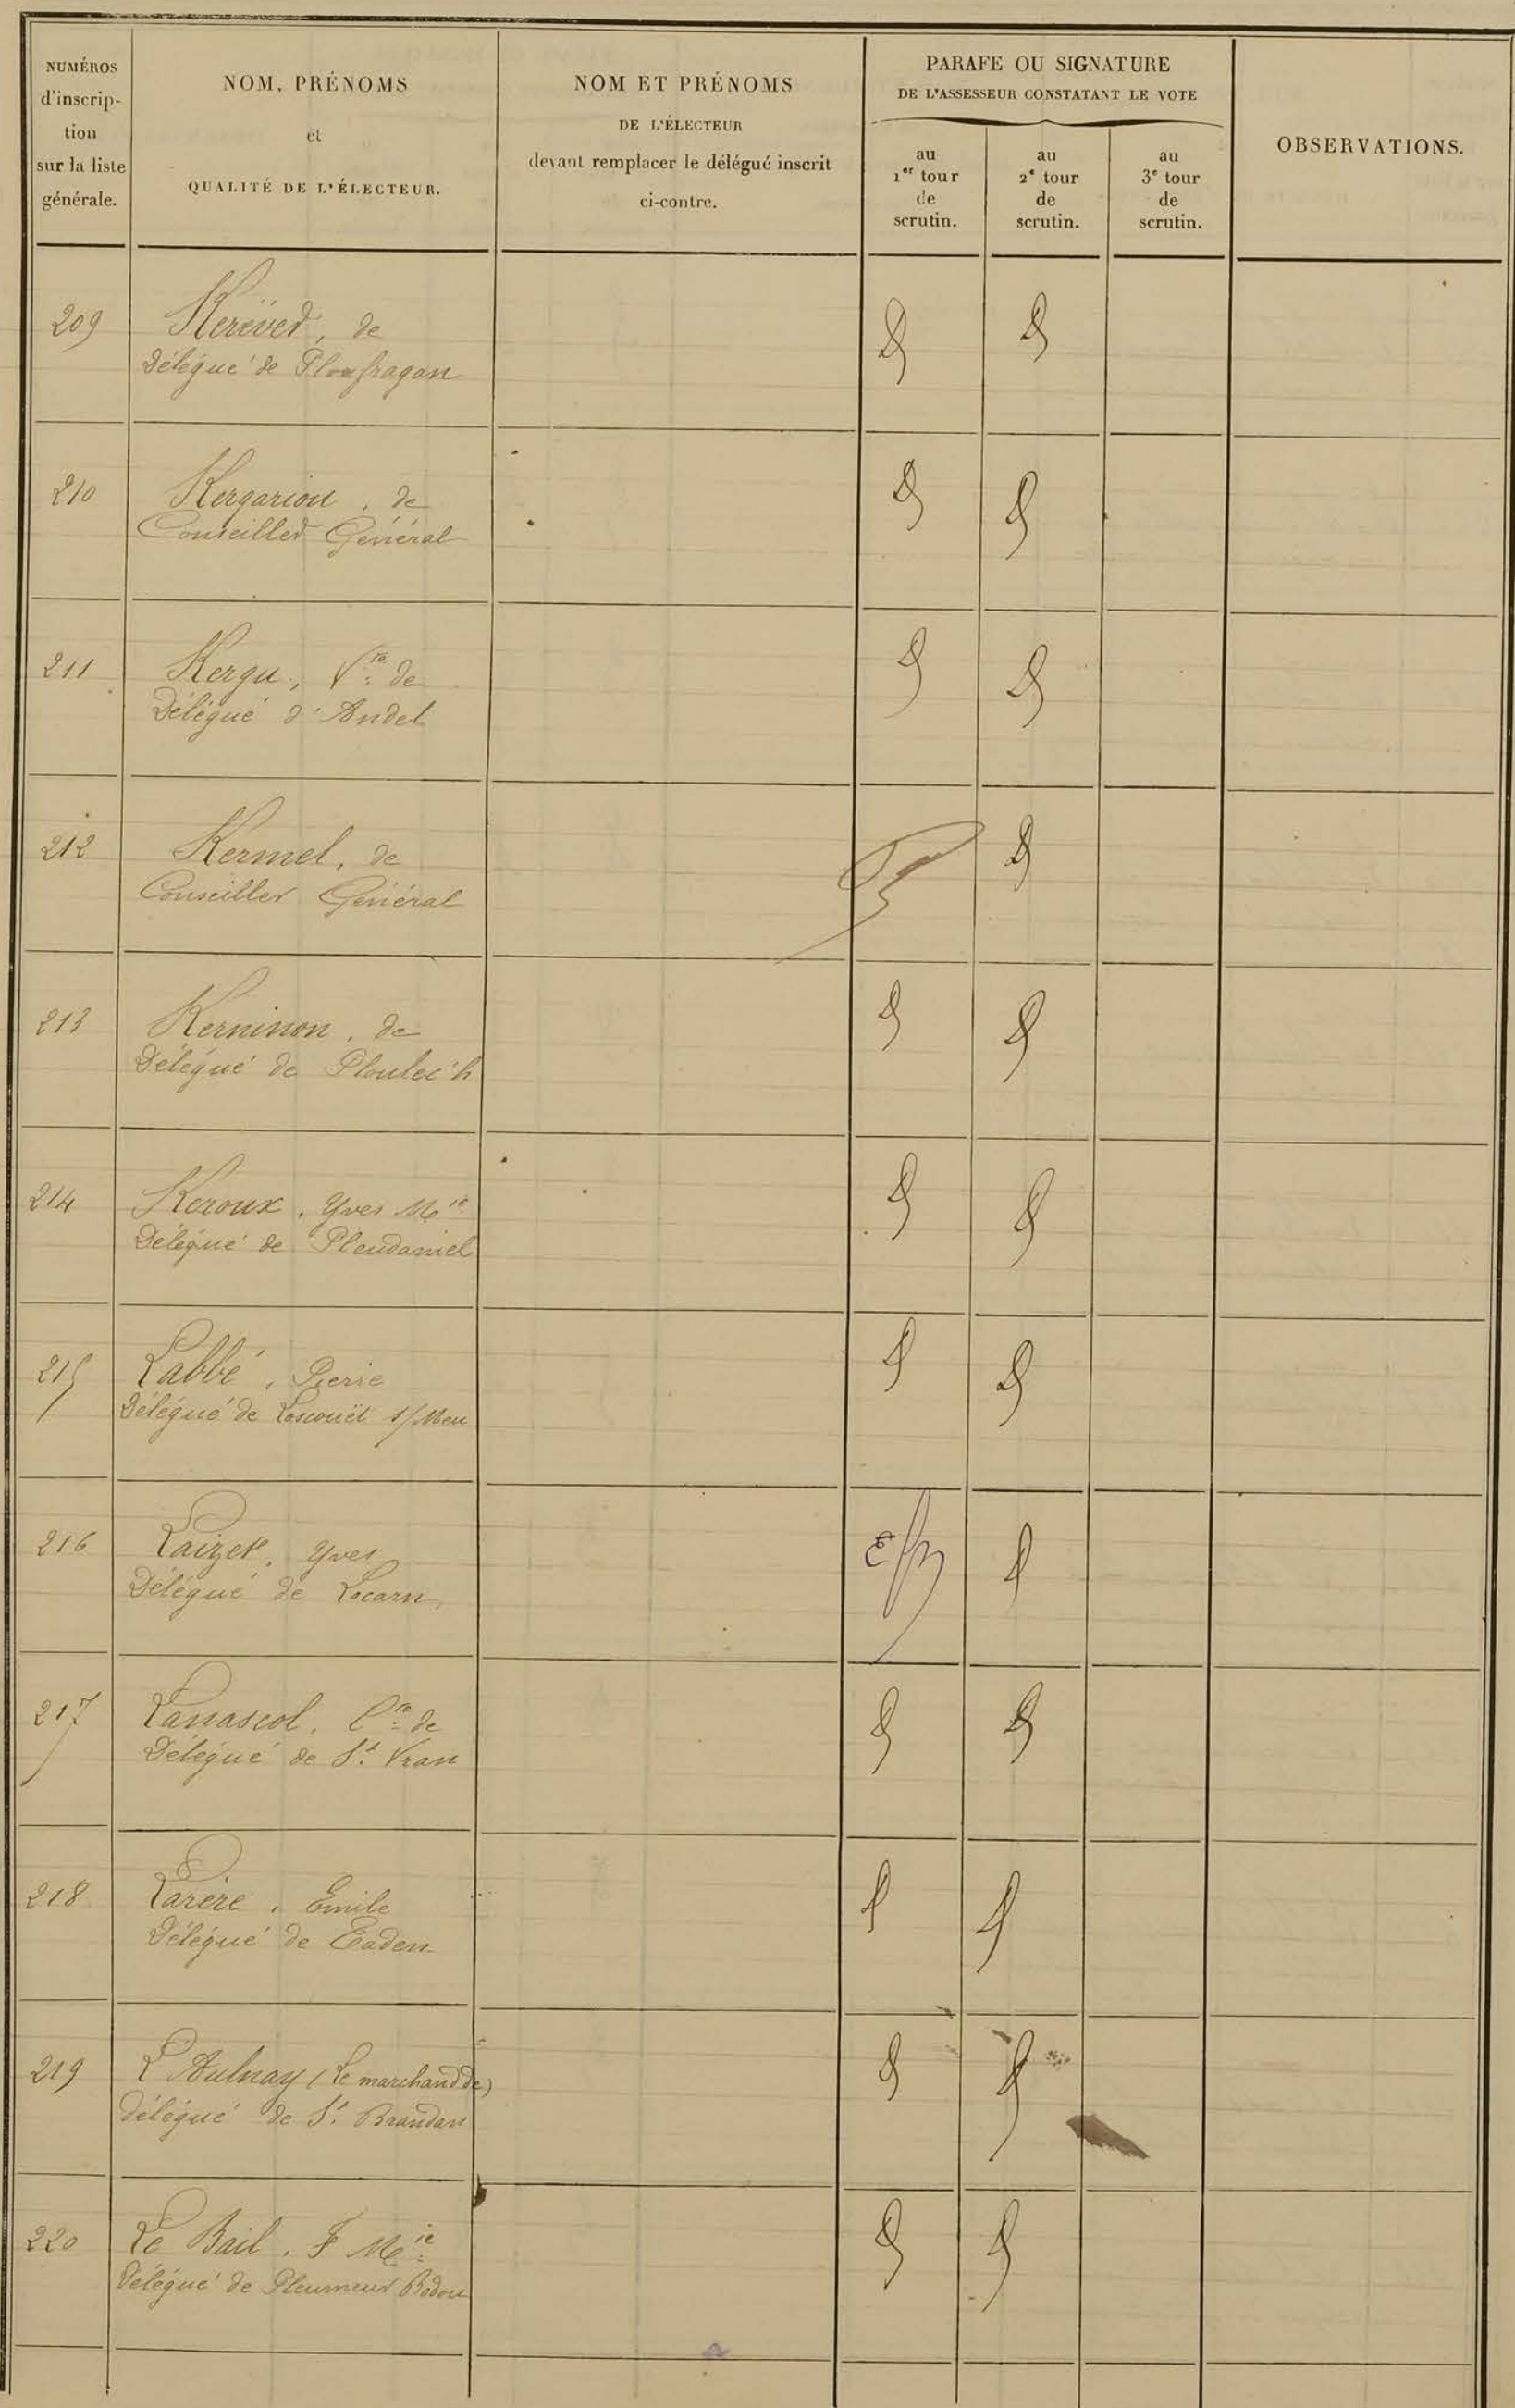 NUMÉROS
d'inscrip-
tion
sur la liste
générale.
NOM, PRÉNOMS
et
QUALITÉ DE L'ÉLECTEUR.
NOM ET PRÉNOMS
DE L'ÉLECTEUR
devant remplacer le délégué inscrit
ci-contre.
PARAFE OU SIGNATURE
DE L'ASSESSEUR CONSTATANT LE VOTE
au
1er tour
de
scrutin.
au
2e tour
de
scrutin.
au
3e tour
de
scrutin.
OBSERVATIONS.
209 Kerëver, de
Délégué de Ploufragan
210 Kergariou, de
Conseiller Général
211 Kergu, Vte de
Délégué d'Andel
212 Kermel, de
Conseiller Général
213 Kerninon, de
Délégué de Ploulec'h
214 Keroux, Yves Mie
Délégué de Pleudaniel
215 Labbé, Pierre
Délégué de Loscouët s/Meu
216 Yves
Délégué de Locarn
217 Lanascol, Cte de
Délégué de St Vran
218 Larère, Emile
Délégué de Éaden
219 L'Aulnay (Le marchand de)
délégué de St Brandan
220 Le Bail, F Mie
Délégué de Pleumeur Bodou